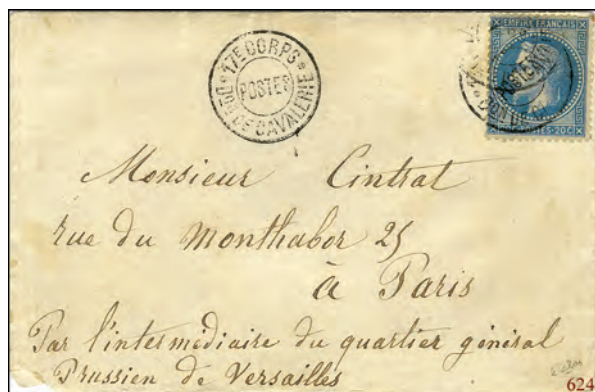 17E CORPS
DON DE CAVALERIE
POSTES
EMPIRE FRANÇAIS
POSTES
POSTES·20C
Monsieur Cintrat
rue du Monthabor 25
à Paris
Par l'intermédiaire du quartier général
Prussien de Versailles
624